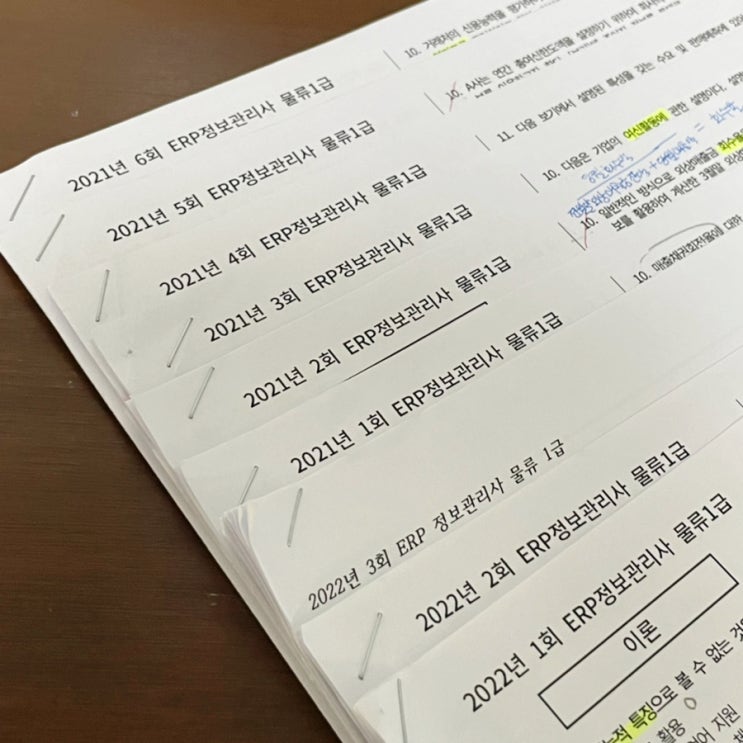 2021년 6회 ERP정보관리사 물류1급
2021년 5회 ERP정보관리사 물류1급
2021년 4회 ERP정보관리사 물류1급
2021년 3회 ERP정보관리사 물류1급
2021년 2회 ERP정보관리사 물류1급
2021년 1회 ERP정보관리사 물류1급
2022년 3회 ERP 정보관리사 물류 1급
2022년 2회 ERP정보관리사 물류1급
2022년 1회 ERP정보관리사 물류1급
이론
특징으로 볼 수 없는 것
활용
지원
10. 거래처의 신용능력을
10. A사는 연간 총여신한도액을 설정하기 위하여
11. 다음 보기에서 설명된 특성을 갖는 수요 및 판매예측에
10. 다음은 기업의 여신활동에 관한 설명이다.
10. 일반적인 방식으로 외상매출금
보를 활용하여 계산한 3월말
10. 매출채권회전율에 대한